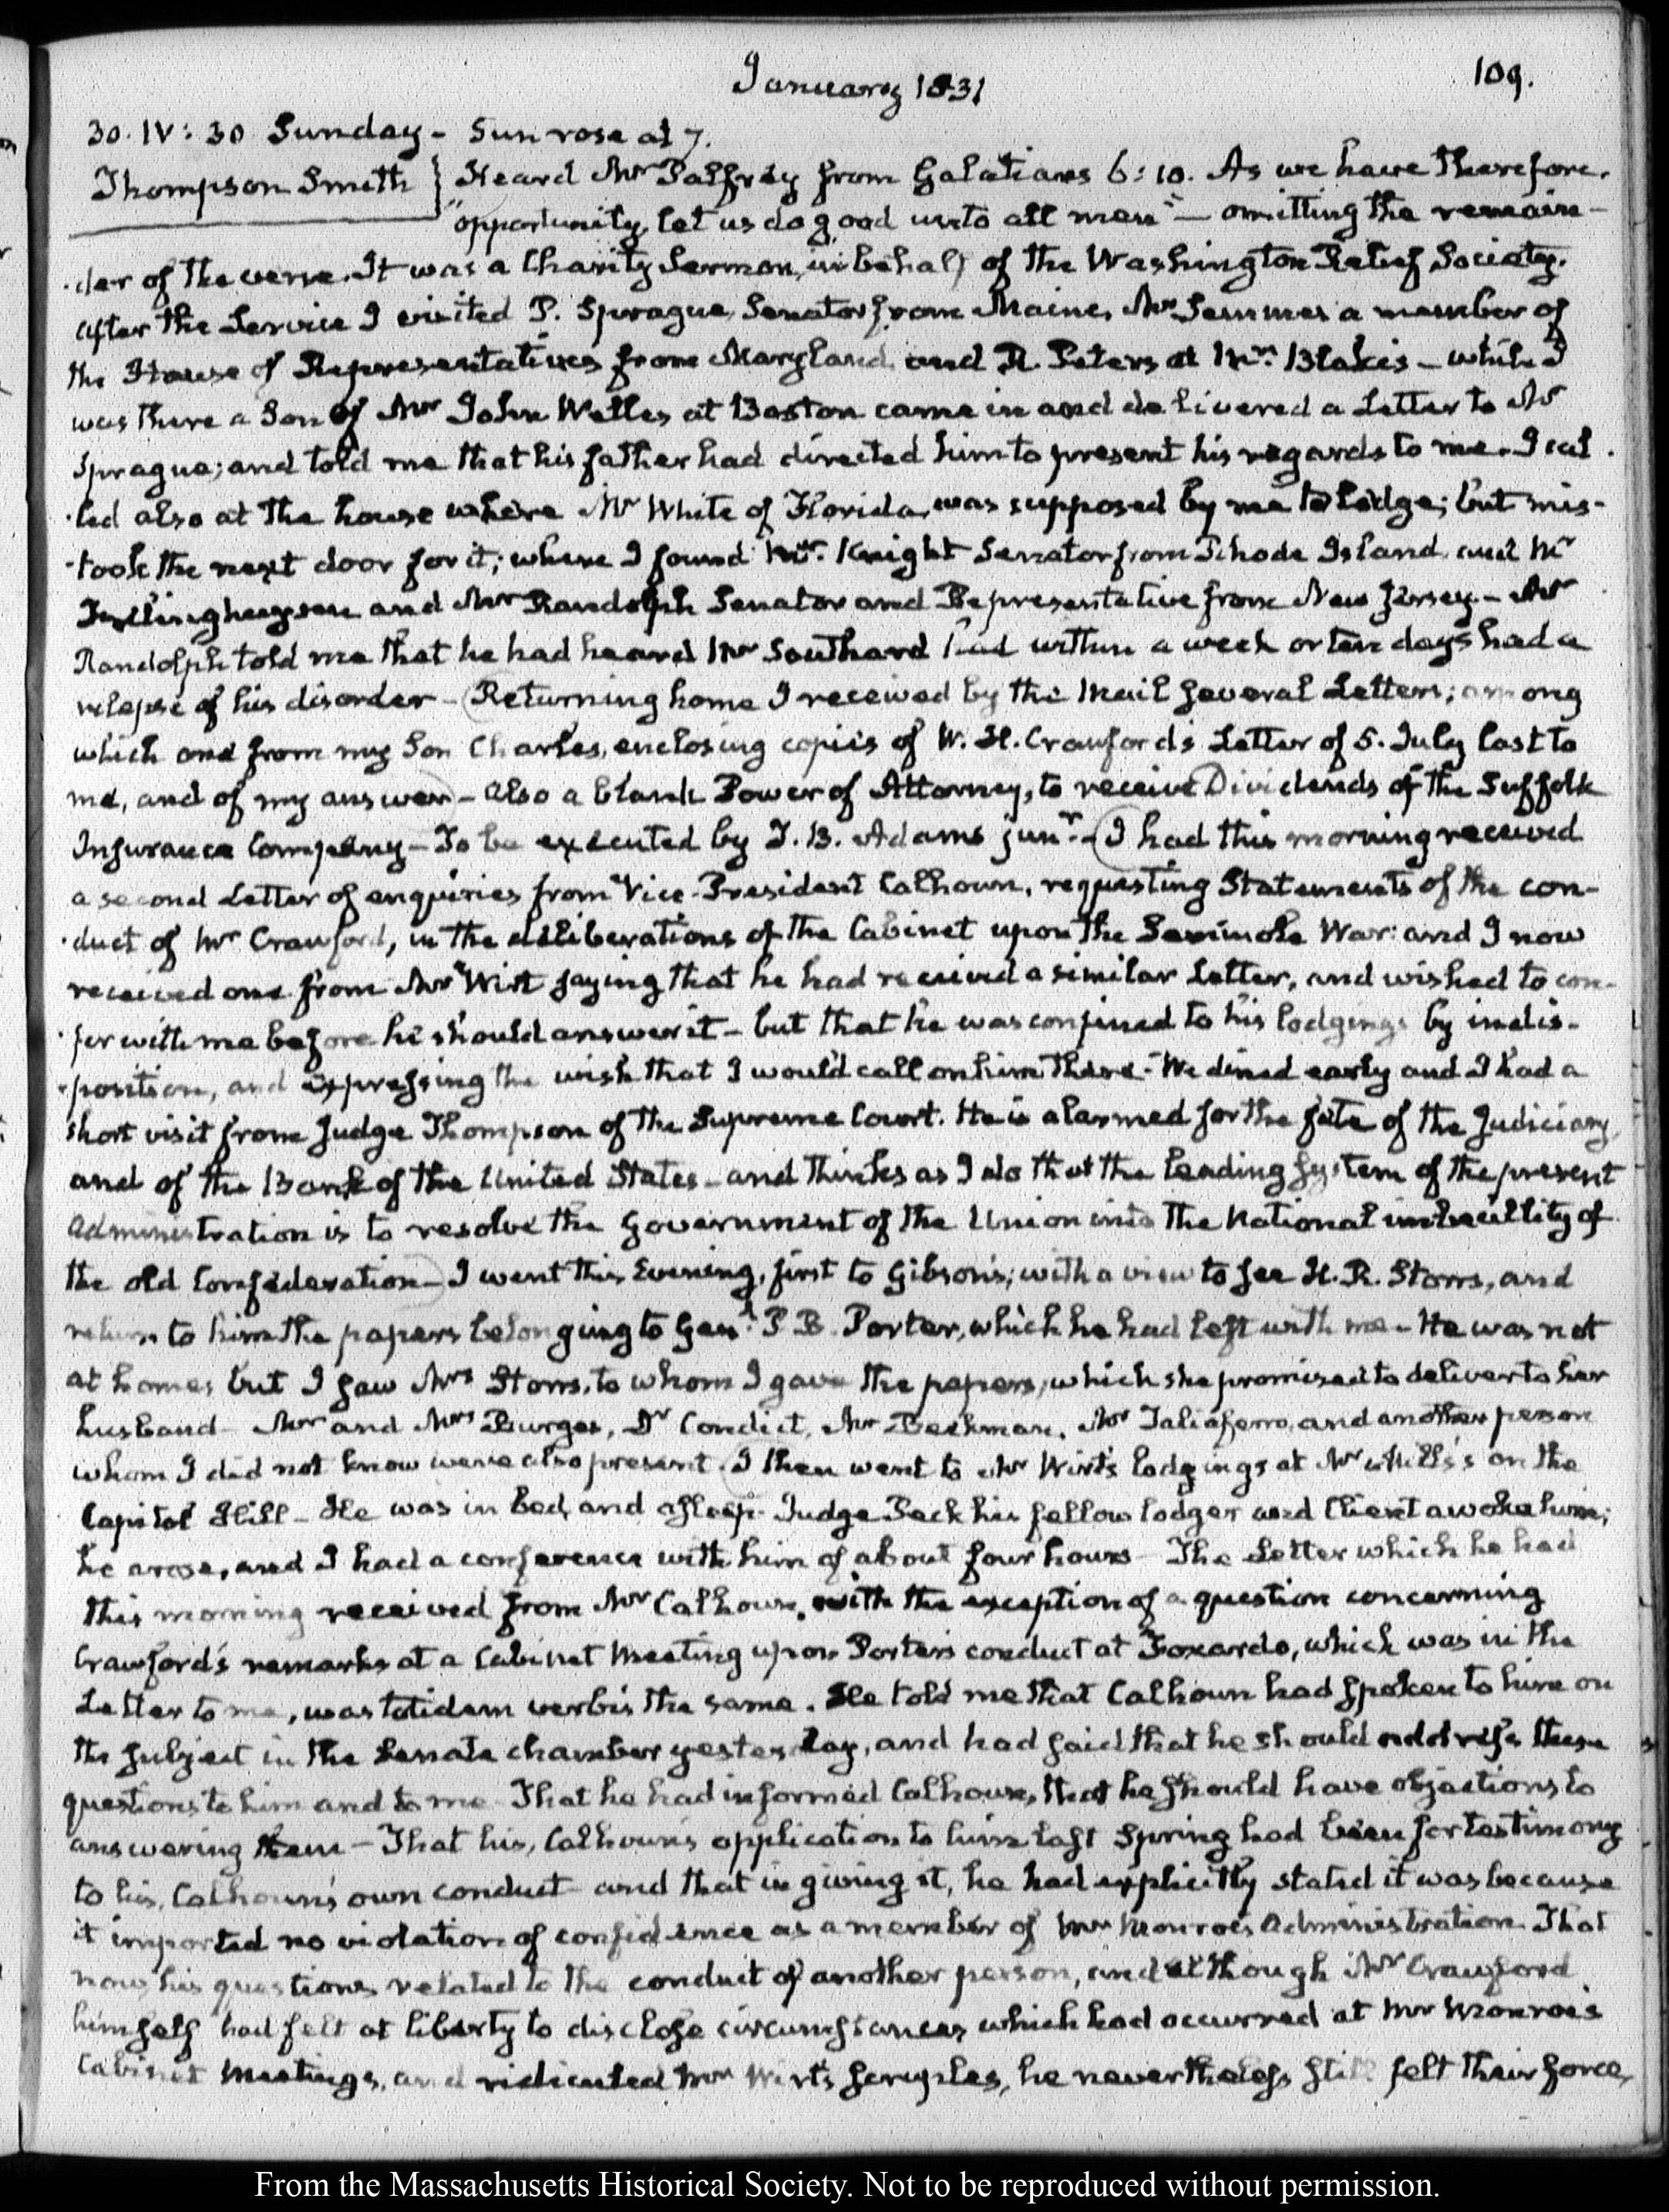 January 1831
109.
30. IV: 30 Sunday - Sun rose at 7.
Thompson Smith } Heard Mr Palfrey from Galatians 6:10. As we have therefore.
"opportunity, let us do good unto all men" — omitting the remain-
-der of the verse. It was a Charity Sermon, in behalf of the Washington Relief Society.
After the Service I visited P. Sprague, Senator from Maine, Mr Semmes a member of
the House of Representatives from Maryland, and R. Peters at Mrs. Blake's - while I
was there a Son of Mr John Welles at Boston came in and delivered a Letter to Mr
Sprague; and told me that his father had directed him to present his regards to me. I cal
-led also at the house where Mr White of Florida, was supposed by me to lodge; but mis-
-took the next door for it; where I found Mr. Knight Senator from Rhode Island, and Mr
Frelinghuysen and Mr Randolph Senator and Representative from New Jersey - Mr
Randolph told me that he had heard Mr Southard had within a week or ten days had a
relapse of his disorder - (Returning home I received by the Mail several Letters; among
which one from my Son Charles, enclosing copies of W. H. Crawford's Letter of 5. July last to
me, and of my answer) - also a blank Power of Attorney, to receive Dividends of the Suffolk
Insurance Company - To be executed by T. B. Adams junr. - (I had this morning received
a second Letter of enquiries from Vice-President Calhoun, requesting Statements of the con-
-duct of Mr Crawford, in the deliberations of the Cabinet upon the Seminole War: and I now
received one from Mr Wirt saying that he had received a similar Letter, and wished to con-
-fer with me before he should answer it - but that he was confined to his lodgings by indis-
-position, and expressing the wish that I would call on him there - We dined early and I had a
short visit from Judge Thompson of the Supreme Court. He is alarmed for the fate of the Judiciary,
and of the Bank of the United States - and thinks as I do that the leading system of the present
Administration is to resolve the Government of the Union into the National imbecility of
the old Confederation) - I went this Evening, first to Gibson's; with a view to see H. R. Storrs, and
return to him the papers belonging to Genl. P. B. Porter, which he had left with me - He was not
at home; but I saw Mrs Storrs, to whom I gave the papers, which she promised to deliver to her
husband - Mr and Mrs Burges, Dr Condict, Mr Beekman, Mr Taliaferro, and another person
whom I did not know were also present. (I then went to Mr Wirt's lodgings at Mr Mills's on the
Capitol Hill - He was in bed, and asleep. Judge Peck his fellow lodger and Client awoke him;
he arose, and I had a conference with him of about four hours - The Letter which he had
this morning received from Mr Calhoun, with the exception of a question concerning
Crawford's remarks at a Cabinet Meeting upon Porter's conduct at Foxardo, which was in the
Letter to me, was totidem verbis the same. He told me that Calhoun had spoken to him on
the subject in the Senate chamber yesterday, and had said that he should address these
questions to him and to me - That he had informed Calhoun, that he should have objections to
answering them - That his, Calhoun's application to him last Spring had been for testimony
to his, Calhoun's own conduct and that in giving it, he had explicitly stated it was because
it imported no violation of confidence as a member of Mr Monroe's Administration. That
now his questions related to the conduct of another person, and although Mr Crawford
himself had felt at liberty to disclose circumstances which had occurred at Mr Monroe's
Cabinet Meetings, and ridiculed Mr Wirt's scruples, he nevertheless still felt their force,
From the Massachusetts Historical Society. Not to be reproduced without permission.